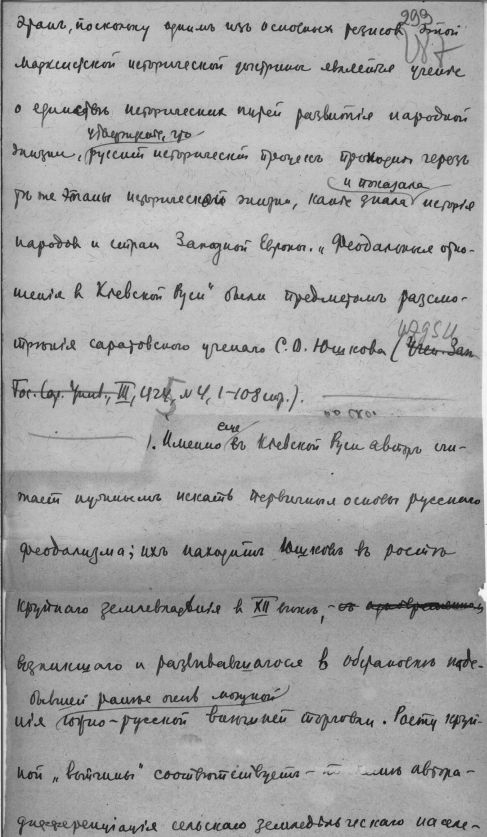 299
287
драт, поскольку однимъ изъ основных тезисов этой
марксистской исторической доктрины является учение
о единствѣ исторических путей развитія народной
утверждает, что
жизни, русский исторический процессъ проходил черезъ
тѣ же этапы исторической жизни, какие знала исторія
и показала
народов и стран Западной Европы. „Феодальные отно-
шенія в Кіевской Руси" были предметомъ разсмо-
трѣнія саратовского ученаго С. В. Юшкова (Учен. Зап.
Гос. Сар. Унив., III, 1924, № 4, 1-108 стр.).
еще
). Именно въ Кіевской Руси авторъ счи-
тает нужнымъ искать первичныя основы русскаго
феодализма; ихъ находитъ Юшковъ въ ростѣ
крупнаго землевладѣнія в XII вѣкѣ, - въ одновременном
возникшаго и развивавшагося в обстановкѣ паде-
бывшей ранѣе очень мощной
нія южно-русской внѣшней торговли. Росту круп-
ной „вотчины" соотвѣтствуетъ - автора -
дифференціація сельскаго земледѣльческаго населе-